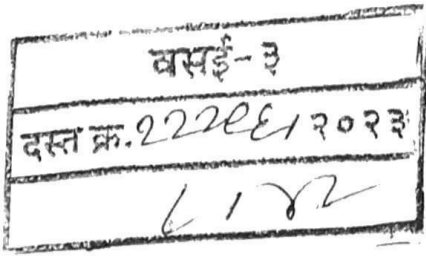 वसई-३
दस्त क्र. २२२९६/२०२३